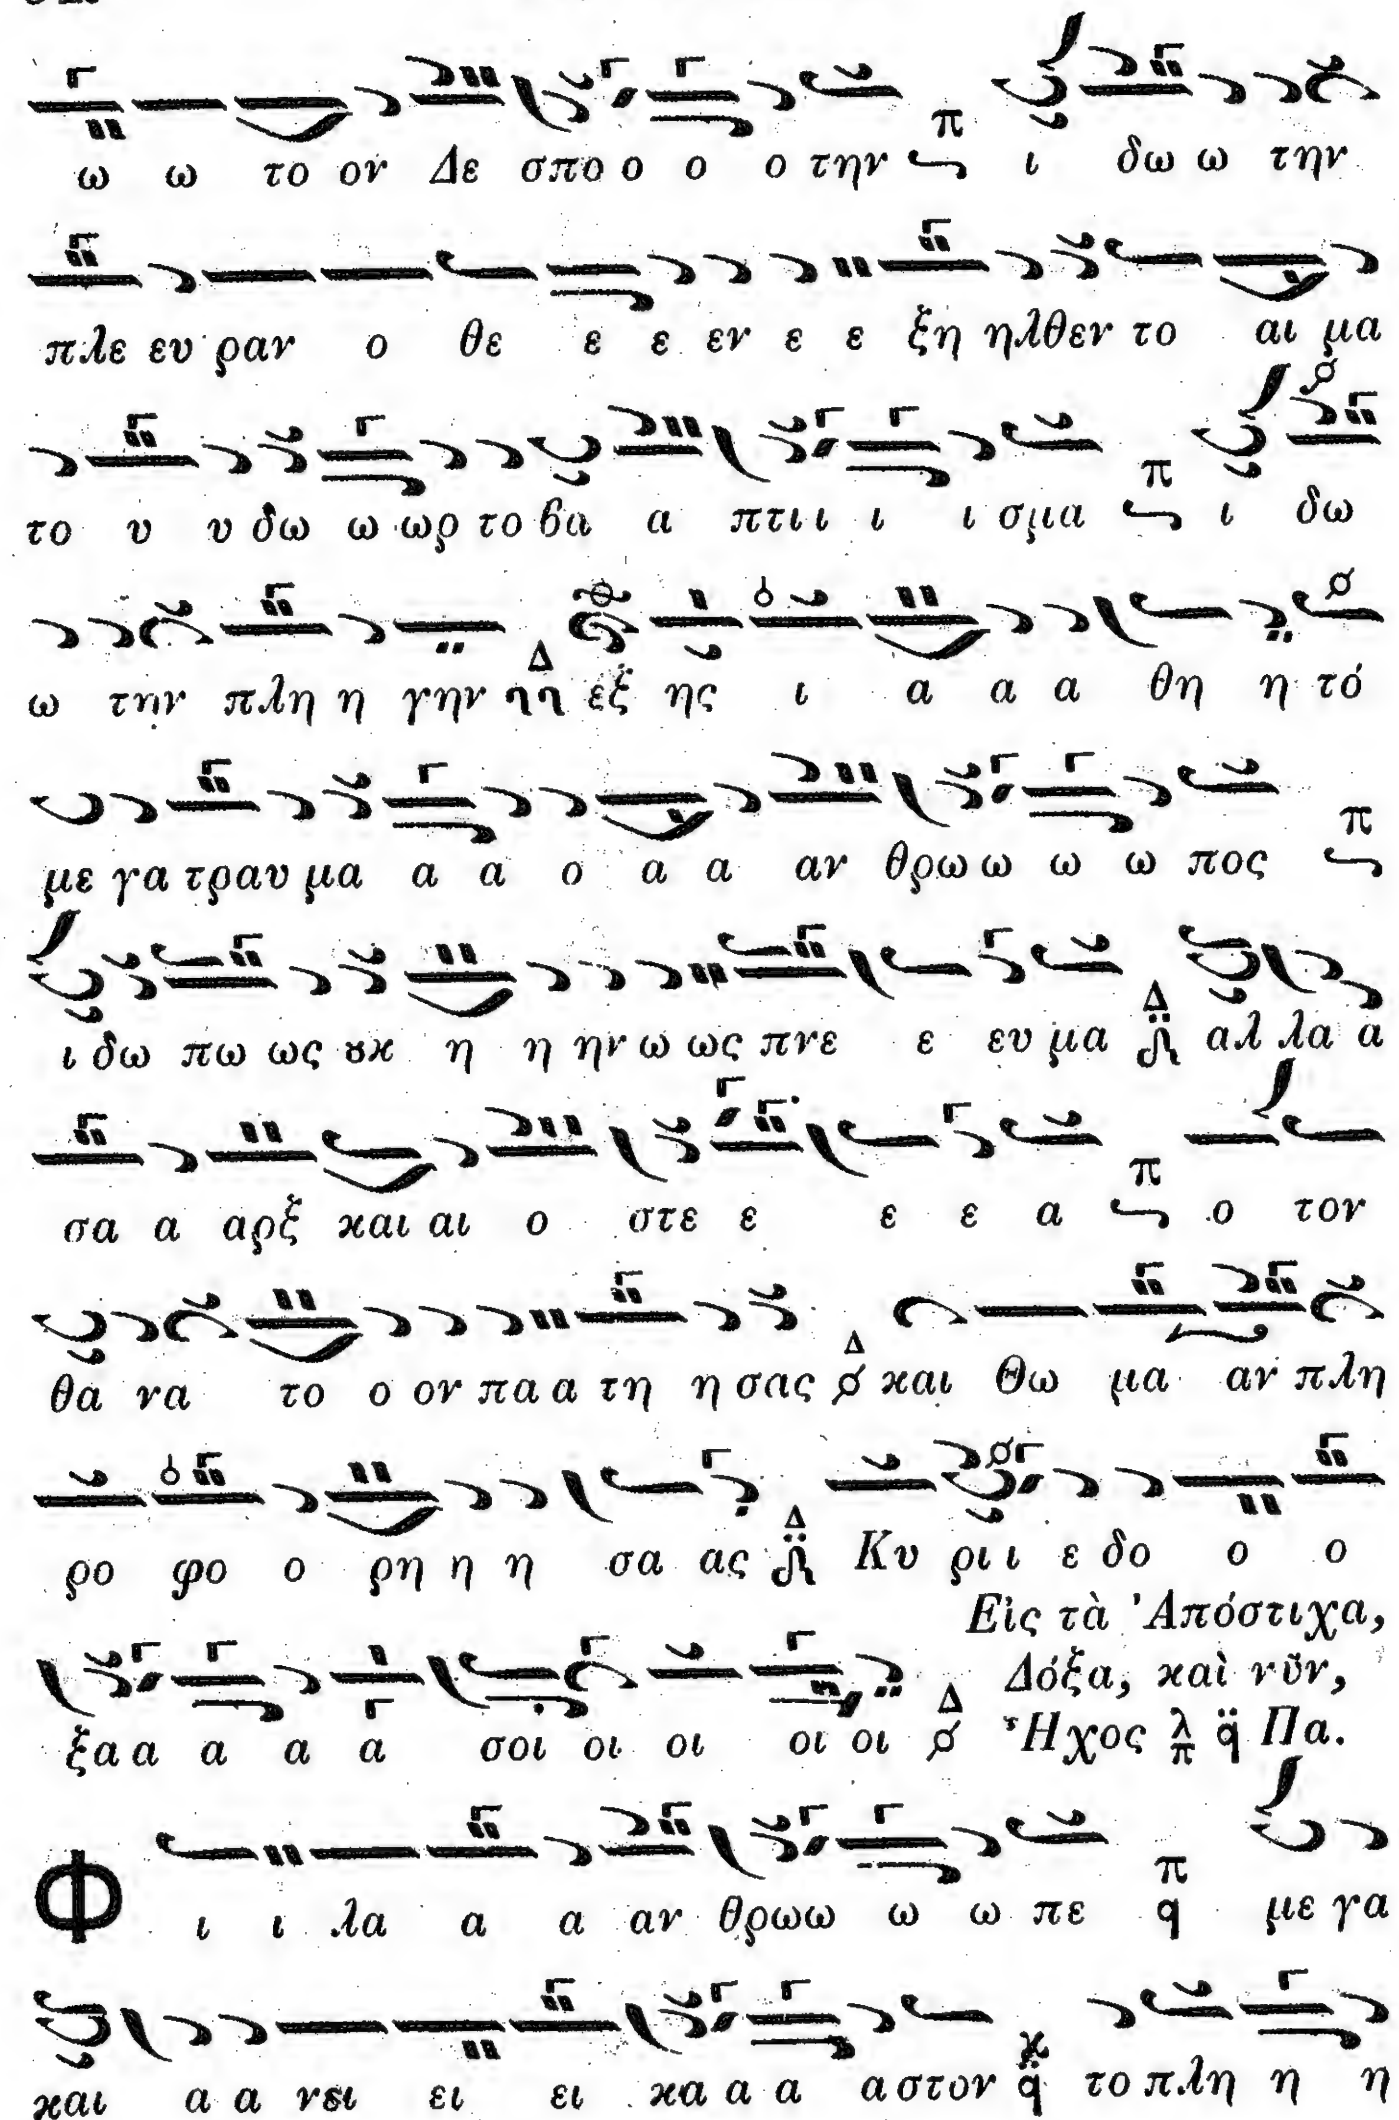 ω ω το ον Δε σπο ο ο ο την π ι δω ω την
πλε ευ ραν ο θε ε ε εν ε ε ξη ηλθεν το αι μα
το υ υ δω ω ωρ το βα α πτι ι ι ι σμα π ι δω
ω την πλη η γην Δ εξ ης ι α α α θη η τό
με γα τραυ μα α α ο α α αν θρω ω ω ω πος π
ι δω πω ως ȣκ η η ην ω ως πνε ε ευ μα Δ αλ λα α
σα α αρξ και αι ο στε ε ε ε α π ο τον
θα να το ο ον πα α τη η σας Δ και Θω μα αν πλη
ρο φο ο ρη η η σα ας Δ Κυ ρι ι ε δο ο ο
Εἰς τὰ Ἀπόστιχα,
Δόξα, καὶ νῦν,
ξα α α α α σοι οι οι οι οι Δ Ἦχος λ π q̈ Πα.
Φ ι ι λα α α αν θρω ω ω ω πε π q με γα
και α α νει ει ει κα α α α στον κ q̈ το πλη η η